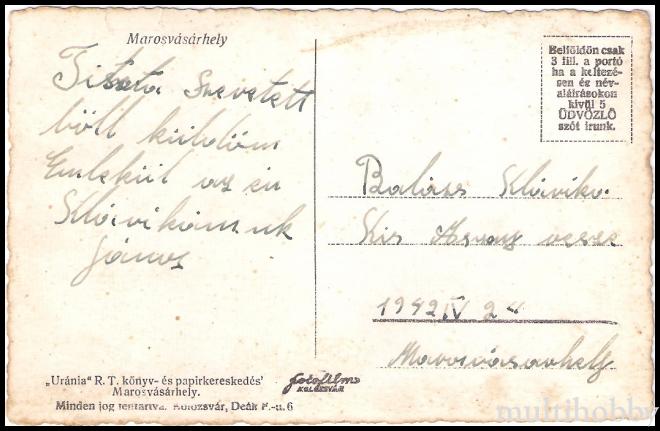 Marosvásárhely
Tiszta Szeretett
ből küldöm
Emlékül az én
Klárikámnak
János
Belföldön csak
3 fill. a portó
ha a keltezé-
sen és név-
aláírásokon
kívül 5
ÜDVÖZLŐ
szót irunk.
Balázs Klárika
Kis
1942 IV 24
Marosvásárhely
„Uránia" R. T. könyv- és papirkereskedés'
Marosvásárhely.
Minden jog fentartva. Kolozsvár, Deák F.-u. 6
fotofilm
KOLOZSVÁR
multihobby